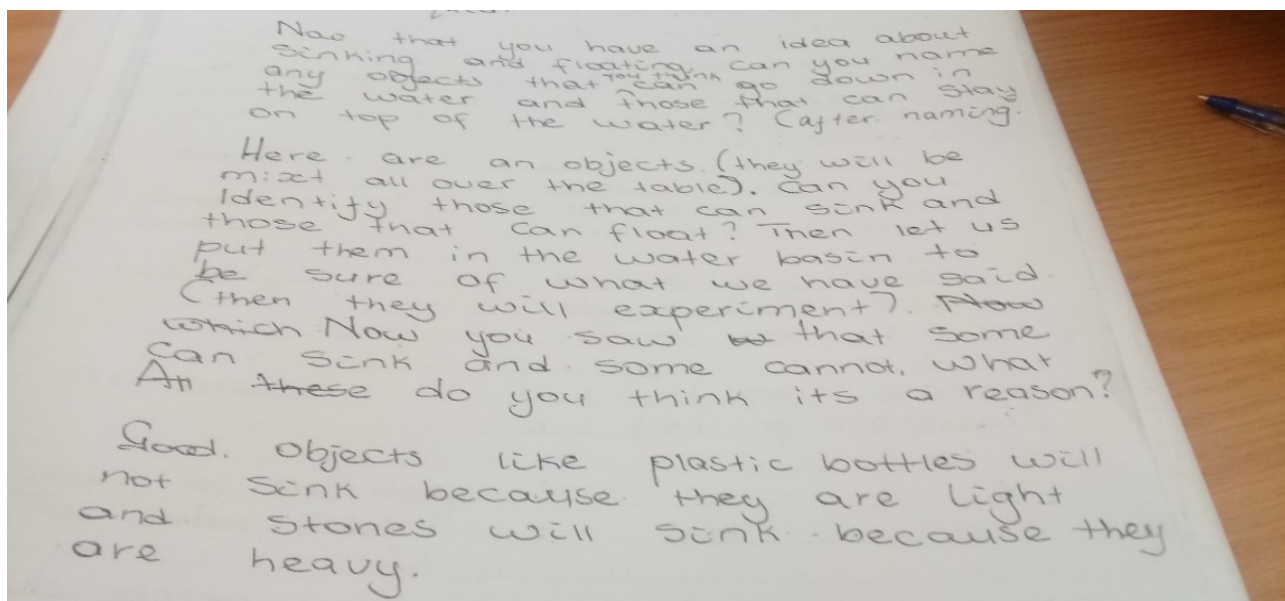 Now that you have an idea about
sinking and floating, can you name
any objects that you think can go down in
the water and those that can stay
on top of the water? (after naming.
Here are an objects. (they will be
mixt all over the table). Can you
Identify those that can sink and
those that can float? Then let us
put them in the water basin to
be sure of what we have said.
(then they will experiment). Now
which Now you saw that some
can sink and some cannot. What
All these do you think its a reason?
Good. Objects like plastic bottles will
not sink because they are light
and stones will sink because they
are heavy.